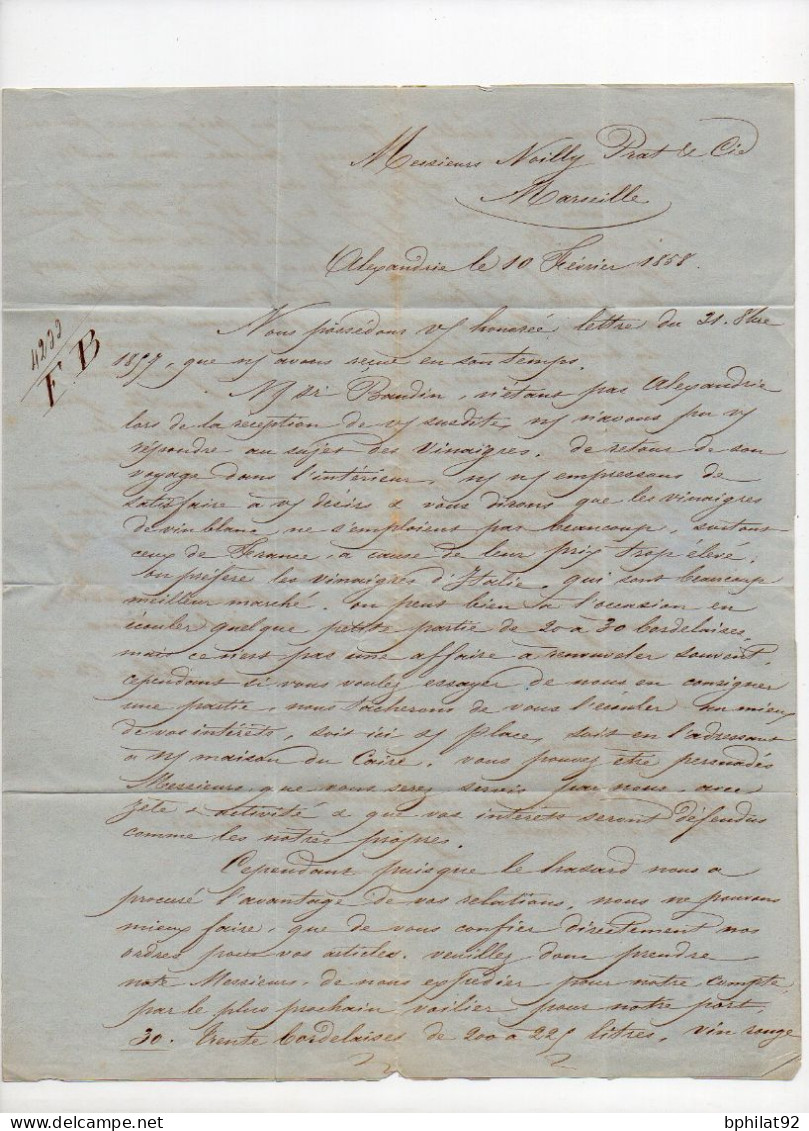 Messieurs Noilly Prat & Cie
Marseille
Alexandrie le 10 Février 1858.
4233
FB
Nous possedons v/ honorée lettre du 31. 8bre
1857, que n/ avons reçue en son temps.
N/ Sr Baudin, n'étant pas Alexandrie
lors de la réception de v/ susdite, n/ n'avons pu v/
répondre au sujet des Vinaigres. de retour de son
voyage dans l'intérieur, n/ n/ empressons de
satisfaire à v/ désirs & vous dirons que les vinaigres
de vin blanc, ne s'emploient pas beaucoup, surtout
ceux de France, a cause de leur prix trop élevé;
on préfère les vinaigres d'Italie, qui sont beaucoup
meilleur marché. on peut bien a l'occasion en
écouler quelque petite partie de 20 à 30 bordelaises,
mais ce n'est pas une affaire à renouveler souvent,
cependant si vous voulez essayer de nous en consigner
une partie, nous tacherons de vous l'écouler au mieux
de vos intérêts, soit ici s/ place, soit en l'adressant
à n/ maison du Caire. vous pouvez être persuadés
Messieurs que vous serez servis par nous avec
zèle & activité & que vos intérêts seront défendus
comme les nôtres propres.
Cependant puisque le hasard nous a
procuré l'avantage de vos relations, nous ne pouvons
mieux faire que de vous confier directement nos
ordres pour vos articles. veuillez donc prendre
note Messieurs, de nous expédier pour notre compte
par le plus prochain voilier pour notre port,
30. Trente bordelaises de 200 à 225 litres, vin rouge
bphilat92